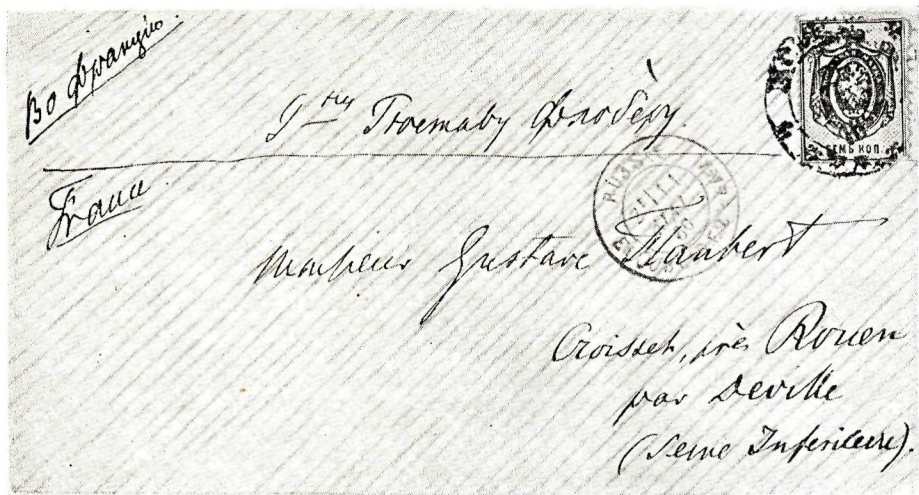 Во Францію.
Г-ну Гюставу Флобèру
СЕМЬ КОП.
France
Monsieur Gustave Flaubert
Croisset, près Rouen
par Deville
(Seine Inférieure).